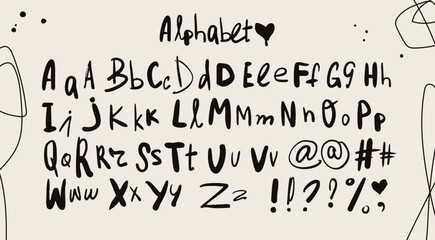 Alphabet
A a A B b C c D d D E e e F f G g H h
I i J K k k L l M M m N n O o P p
Q q R R r S s T t U u V v @ @ # #
W w w X x Y y Z z ! ! ? ? % ;